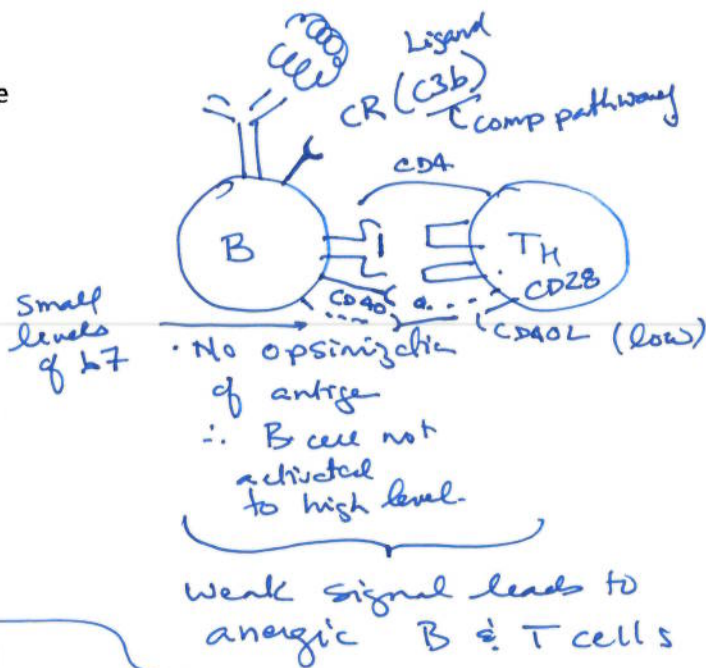 e
Ligand
CR (C3b)
comp pathway
CD4
B
TH
CD28
CD40
CD40L (low)
Small
levels
of b7
· No opsinization
of antige
∴ B cell not
activated
to high level.
weak signal leads to
anergic B & T cells